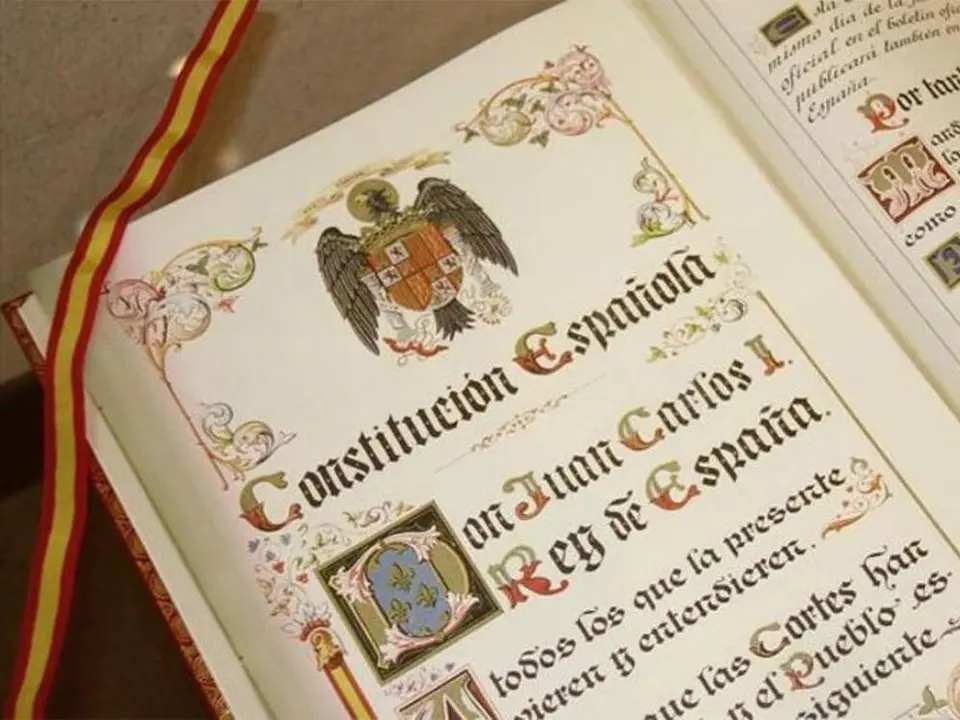 Constitución Española
Don Juan Carlos I.
Rey de España.
A todos los que la presente
vieren y entendieren.
que las Cortes han
y el Pueblo es-
siguiente
mismo día de la
oficial en el boletín
publicará también en
España.
Por
como